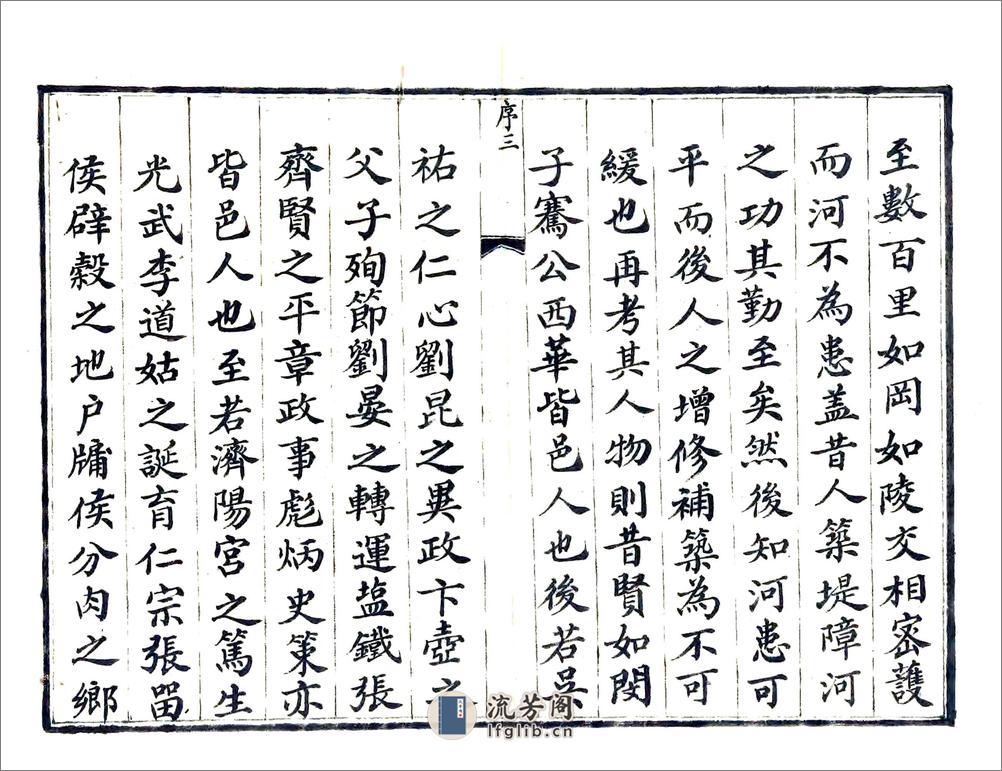 至數百里如岡如陵交相密護
而河不為患盖昔人築堤障河
之功其勤至矣然後知河患可
平而後人之增修補築為不可
緩也再考其人物則昔賢如閔
子騫公西華皆邑人也後若吳
序三
祐之仁心劉昆之異政卞壼之
父子殉節劉晏之轉運塩鐵張
齊賢之平章政事彪炳史策亦
皆邑人也至若濟陽宮之篤生
光武李道姑之誕育仁宗張畱
侯辟榖之地户牗侯分肉之鄉
流芳阁
lfglib.cn